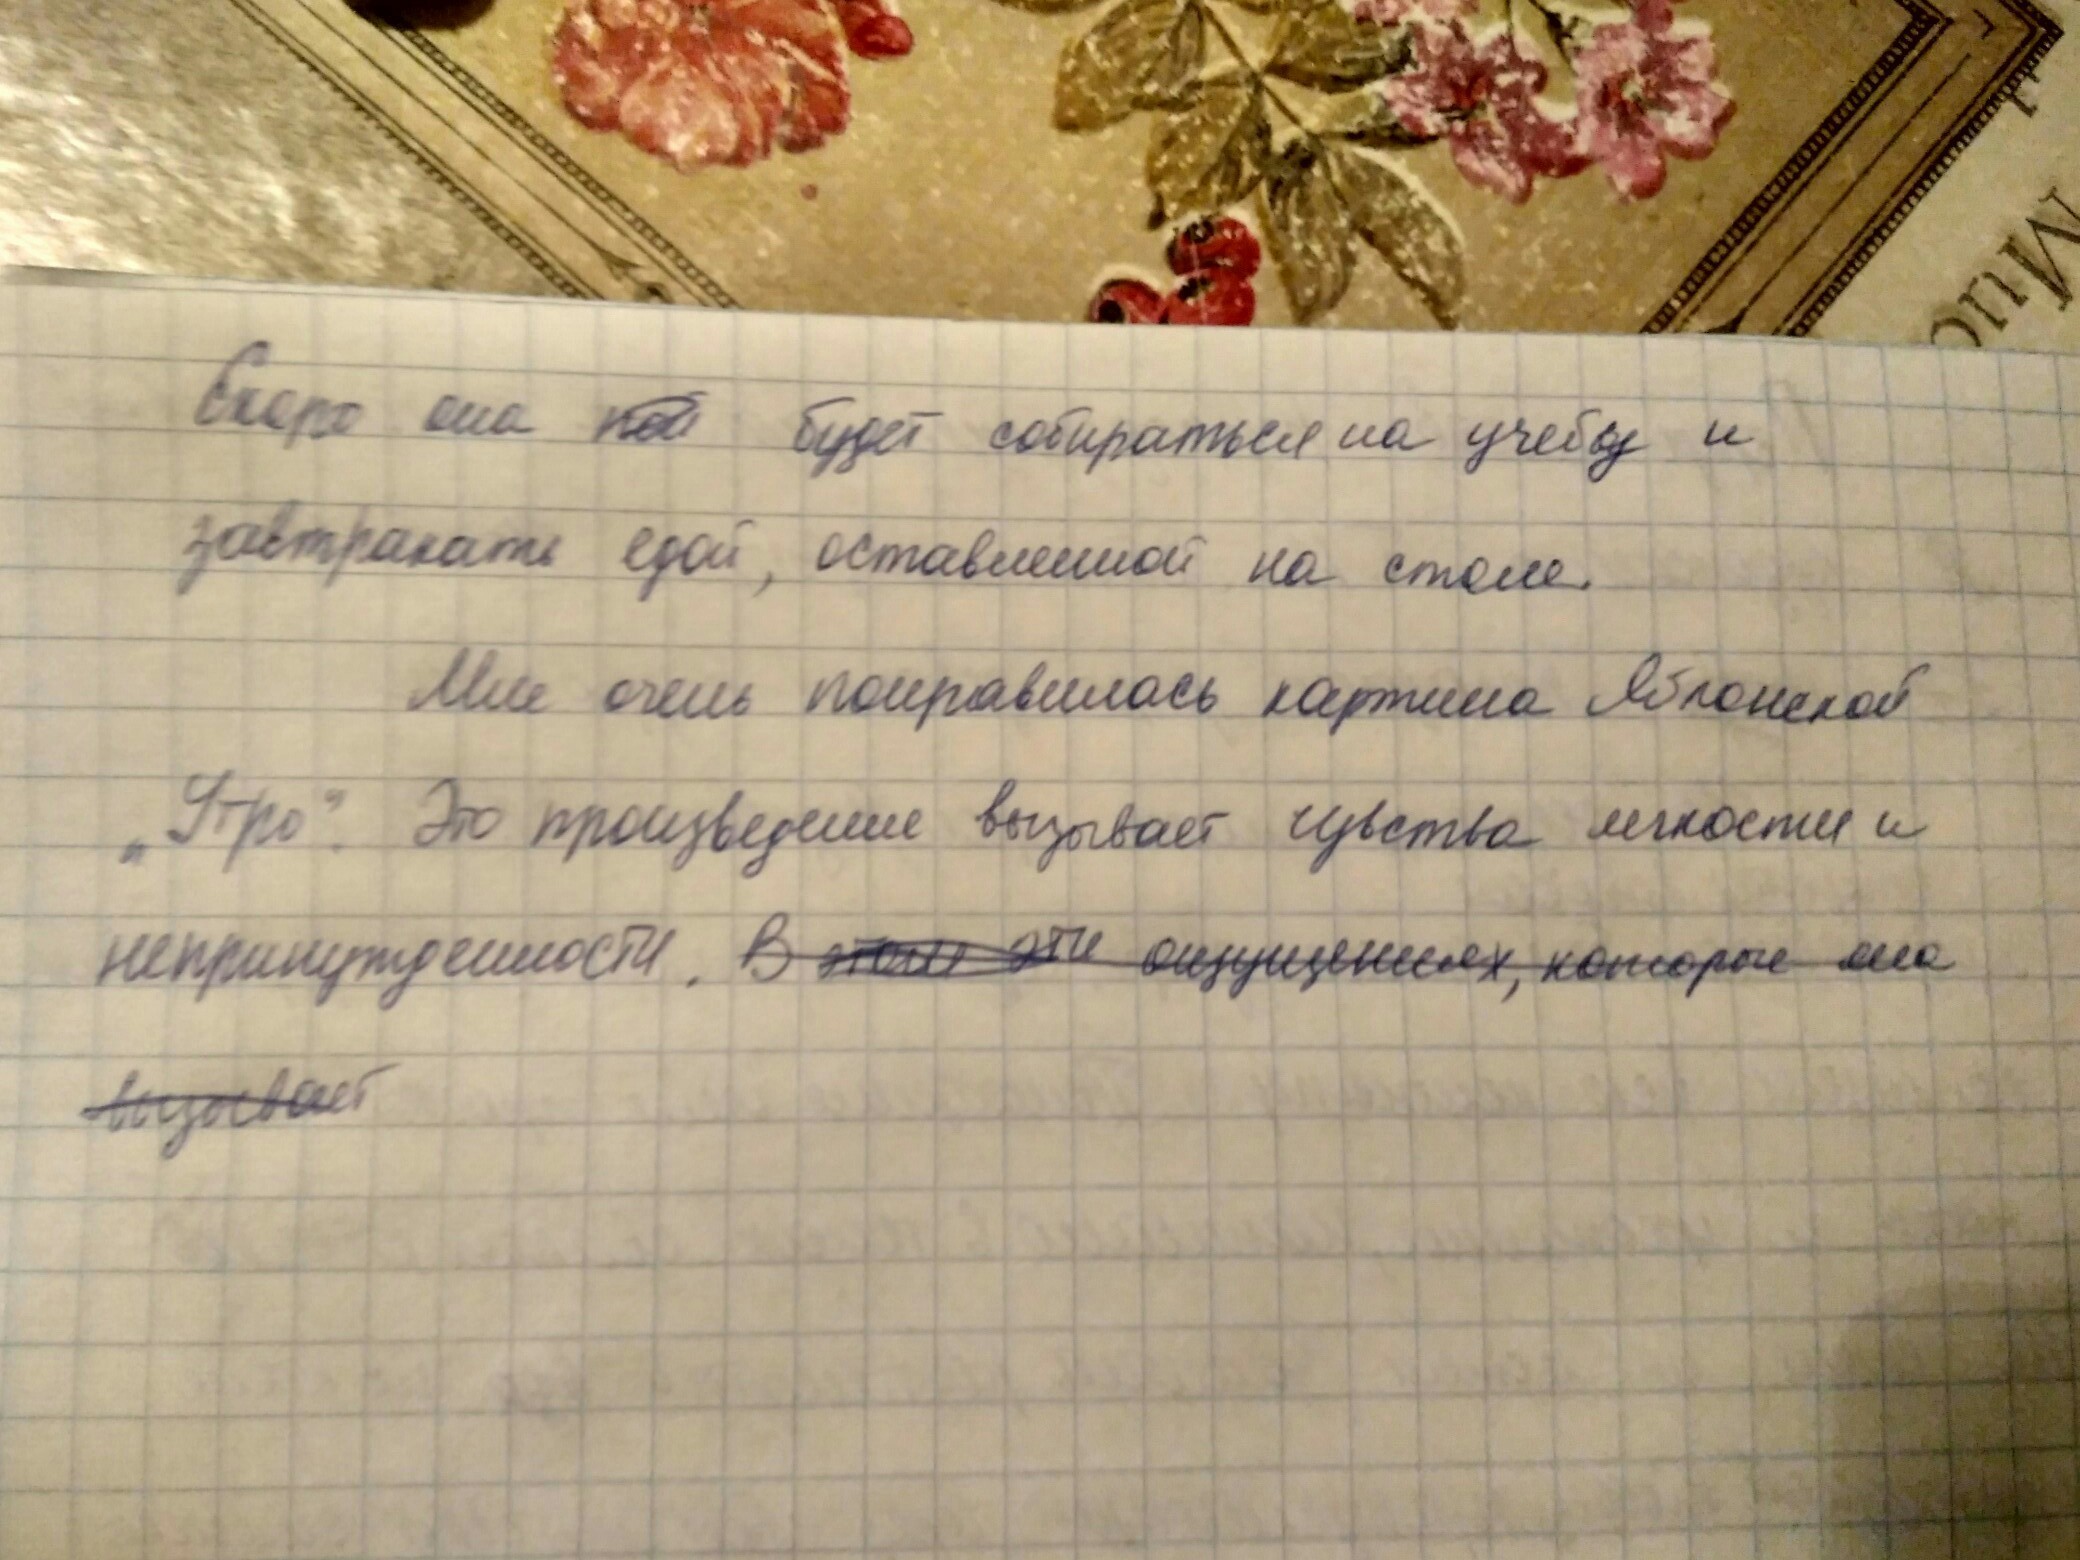 Скоро она будет собираться на учебу и
завтракать едой, оставленной на столе.
Мне очень понравилась картина Яблонской
„Утро". Это произведение вызывает чувства легкости и
непринужденности. В этом эти ощущениях, которые она
вызывает